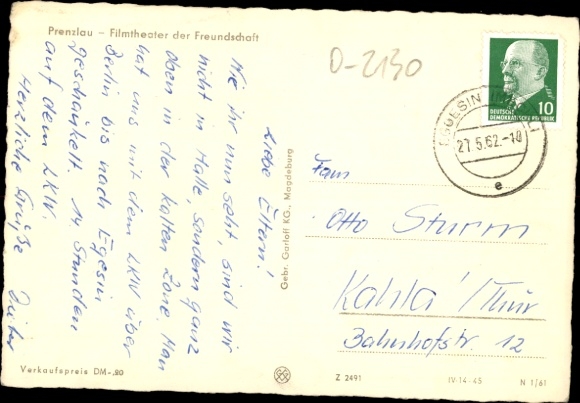 Prenzlau – Filmtheater der Freundschaft
D-2130
Liebe Eltern!
Wie ihr nun seht, sind wir
nicht in Halle, sondern ganz
oben in der kalten Zone. Man
hat uns mit dem LKW über
Berlin bis nach Egesin
geschaukelt. 14 Stunden
auf dem LKW.
Herzliche Grüße
Verkaufspreis DM -.20
Gebr. Garloff KG., Magdeburg
10
DEUTSCHE
DEMOKRATISCHE REPUBLIK
27.5.62.-10
e
Fam
Otto Sturm
Kahla/Thür
Bahnhofstr. 12
Z 2491
IV-14-45
N 1/61